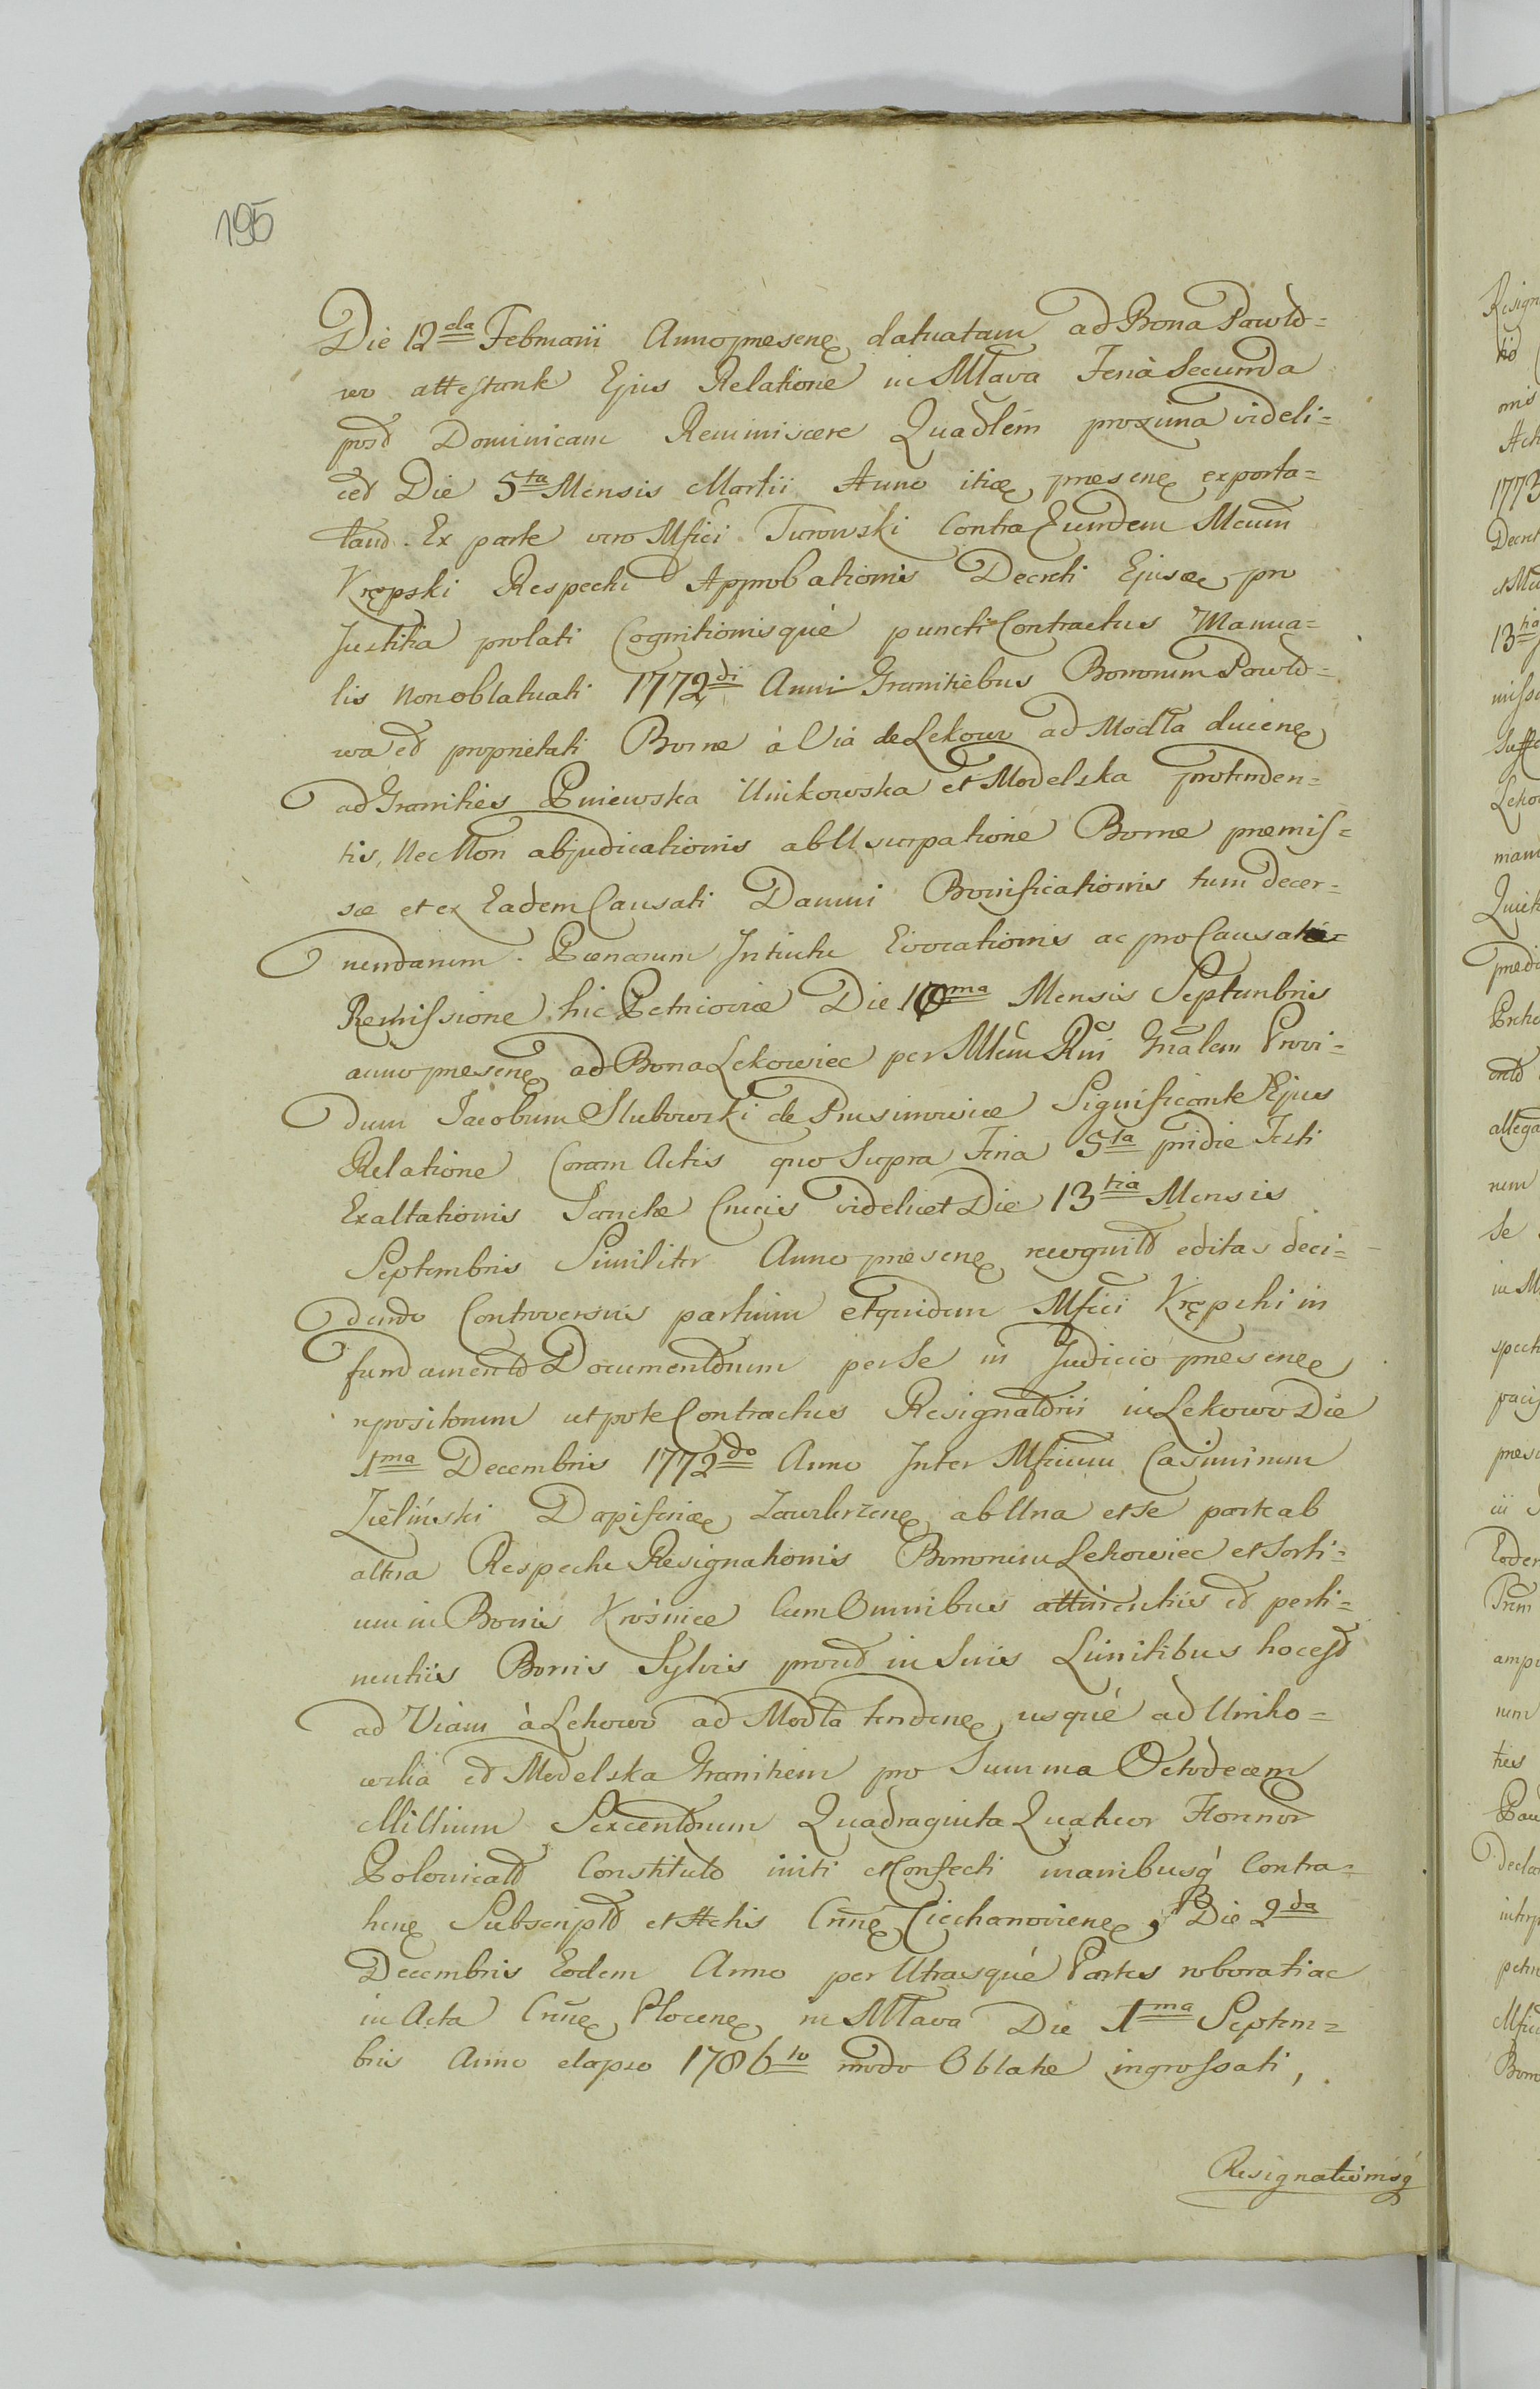 195
Die 12da Februarii Anno praesene datuatam ad Bona Pawło=
wo attestante Ejus Relatione in Mława Feria Secunda
post Dominicam Reminiscere Quadlém proxima videli=
cet Die 5ta Mensis Martii Anno itiae praesene exporta=
tam. Ex parte vero Mfici Turowski Contra Eundem Mcum
Krępski Respectu Approbationis Decreti Ejusae pro
Justitia prolati Cognitionisque puncti Contractus Manua=
lis non oblatuati 1772di Anni Granitiebus Bonorum Pawło=
wa et proprietati Borrae à Via de Lekowo ad Modła ducene
ad Granities Pniewska Unikowska et Modelska protenden=
tis, Nec Non abjudicationis ab Usurpatione Borrae praemis=
sae et ex Eadem Causati Damni Bonificationis tum decer=
nendarum Poenarum Intuitu Evocationis ac pro Causatae
Remissione hic Petricoviae Die 10ma Mensis Septembris
anno praesene ad Bona Lekowiec per Mlem Rni Gnalem Provi=
dum Jacobum Slubowski de Prusinowice Significante Ejus
Relatione Coram Actis quo Supra Feria 5ta pridie Festi
Exaltationis Sanctae Crucis videlicet Die 13tia Mensis
Septembris Similiter Anno praesene recognito editas deci=
dendo Controversiis partium etquidem Mfici Krępski in
fundamento Documentorum per Se in Judicio praesene
repositorum utpote Contractus Resignatorii in Lekowo Die
1ma Decembris 1772do Anno Inter Mficum Casimirum
Zieliński Dapiferiae Zawkrzene ab Una et se parte ab
altera Respectu Resignationis Bonorum Lekowiec et Sorti=
um in Bonis Krośnice Cum Omnibus attinentiis et perti=
nentiis Borris Sylvis prout in Suis Limitibus hoc est
ad Viam à Lekowo ad Modła tendene usque ad Uniko=
wska et Modelska Granitiem pro Summa Octodecem
Millium Sexcentorum Quadraginta Quatuor Florenor
Polonicalo Constituto initi et Confecti manibusq́ Contra=
hene Subscripto et Actis Crnne Ciechanoviene Die 2da
Decembris Eodem Anno per Utrasque Partes roborati ac
in Acta Crnne Plocene in Mława Die 1ma Septem=
bris Anno elapso 1786to modo Oblatae ingrossati,
Resignationisq́